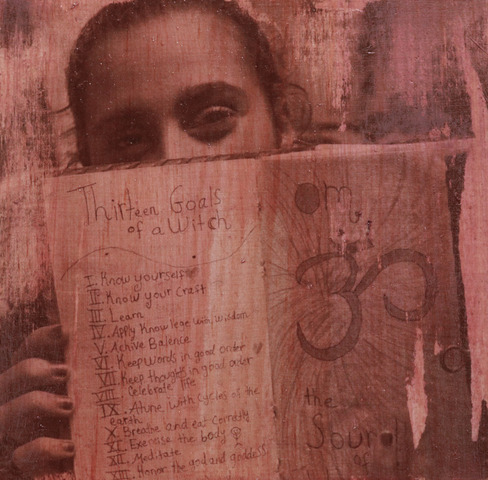 Thirteen Goals
of a Witch
I. Know yourself
II. Know your Crast
III. Learn
IV. Apply Knowlege with wisdom
V. Achive Balence
VI. Keep words in good order
VII. Keep thoughts in good order
VIII. Celebrate life
IX. Atune with Cycles of the
earth
X. Breathe and eat Correctly
XI. Exersise the body
XII. Meditate
XIII. Honor the god and goddess
Om
ॐ
the
Sound
of